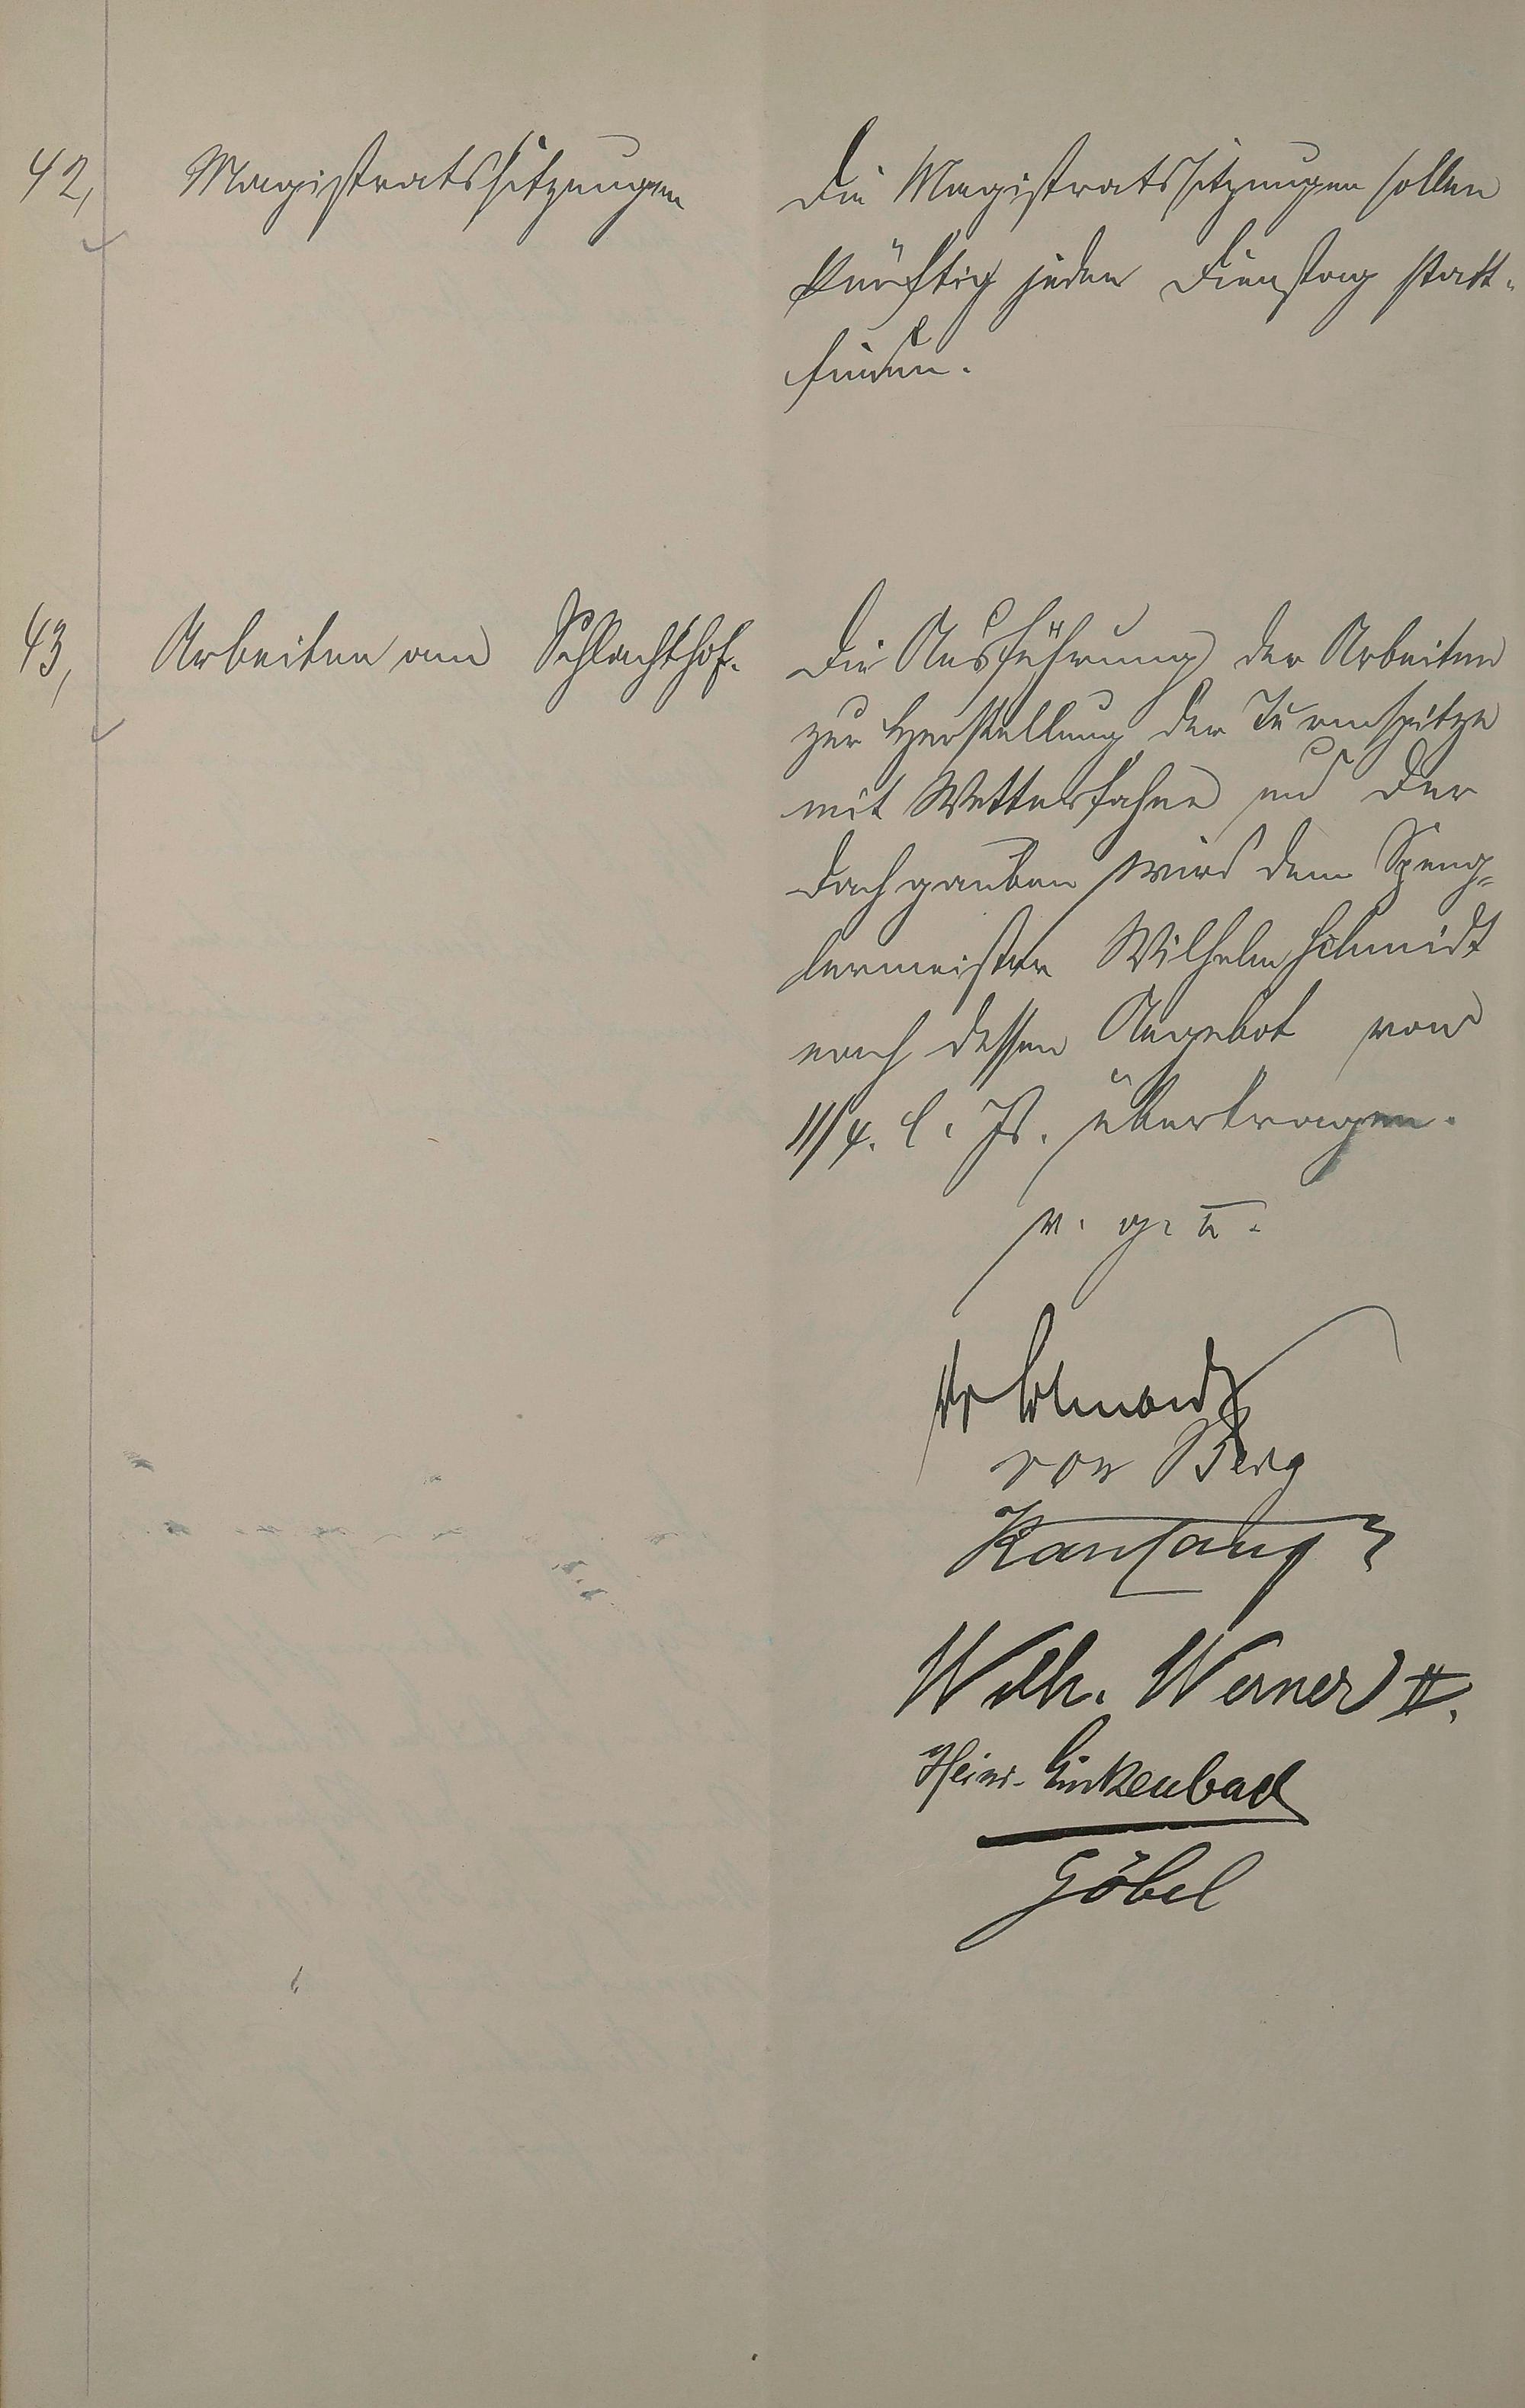 42, Magistratssitzungen
Die Magistratssitzungen sollen
künftig jeden Dienstag statt-
finden.
43, Arbeiten am Schlachthof.
Die Ausführung der Arbeiten
zur Herstellung der Turmspitze
mit Wetterfahne und der
Dachgauben wird dem Speng-
lermeister Wilhelm Schmidt
nach dessen Angebot vom
11/4. l. Js. übertragen.
v. g. u.
von Berg
Wilh. Werner II.
Heinr. Linkenbach
Göbel